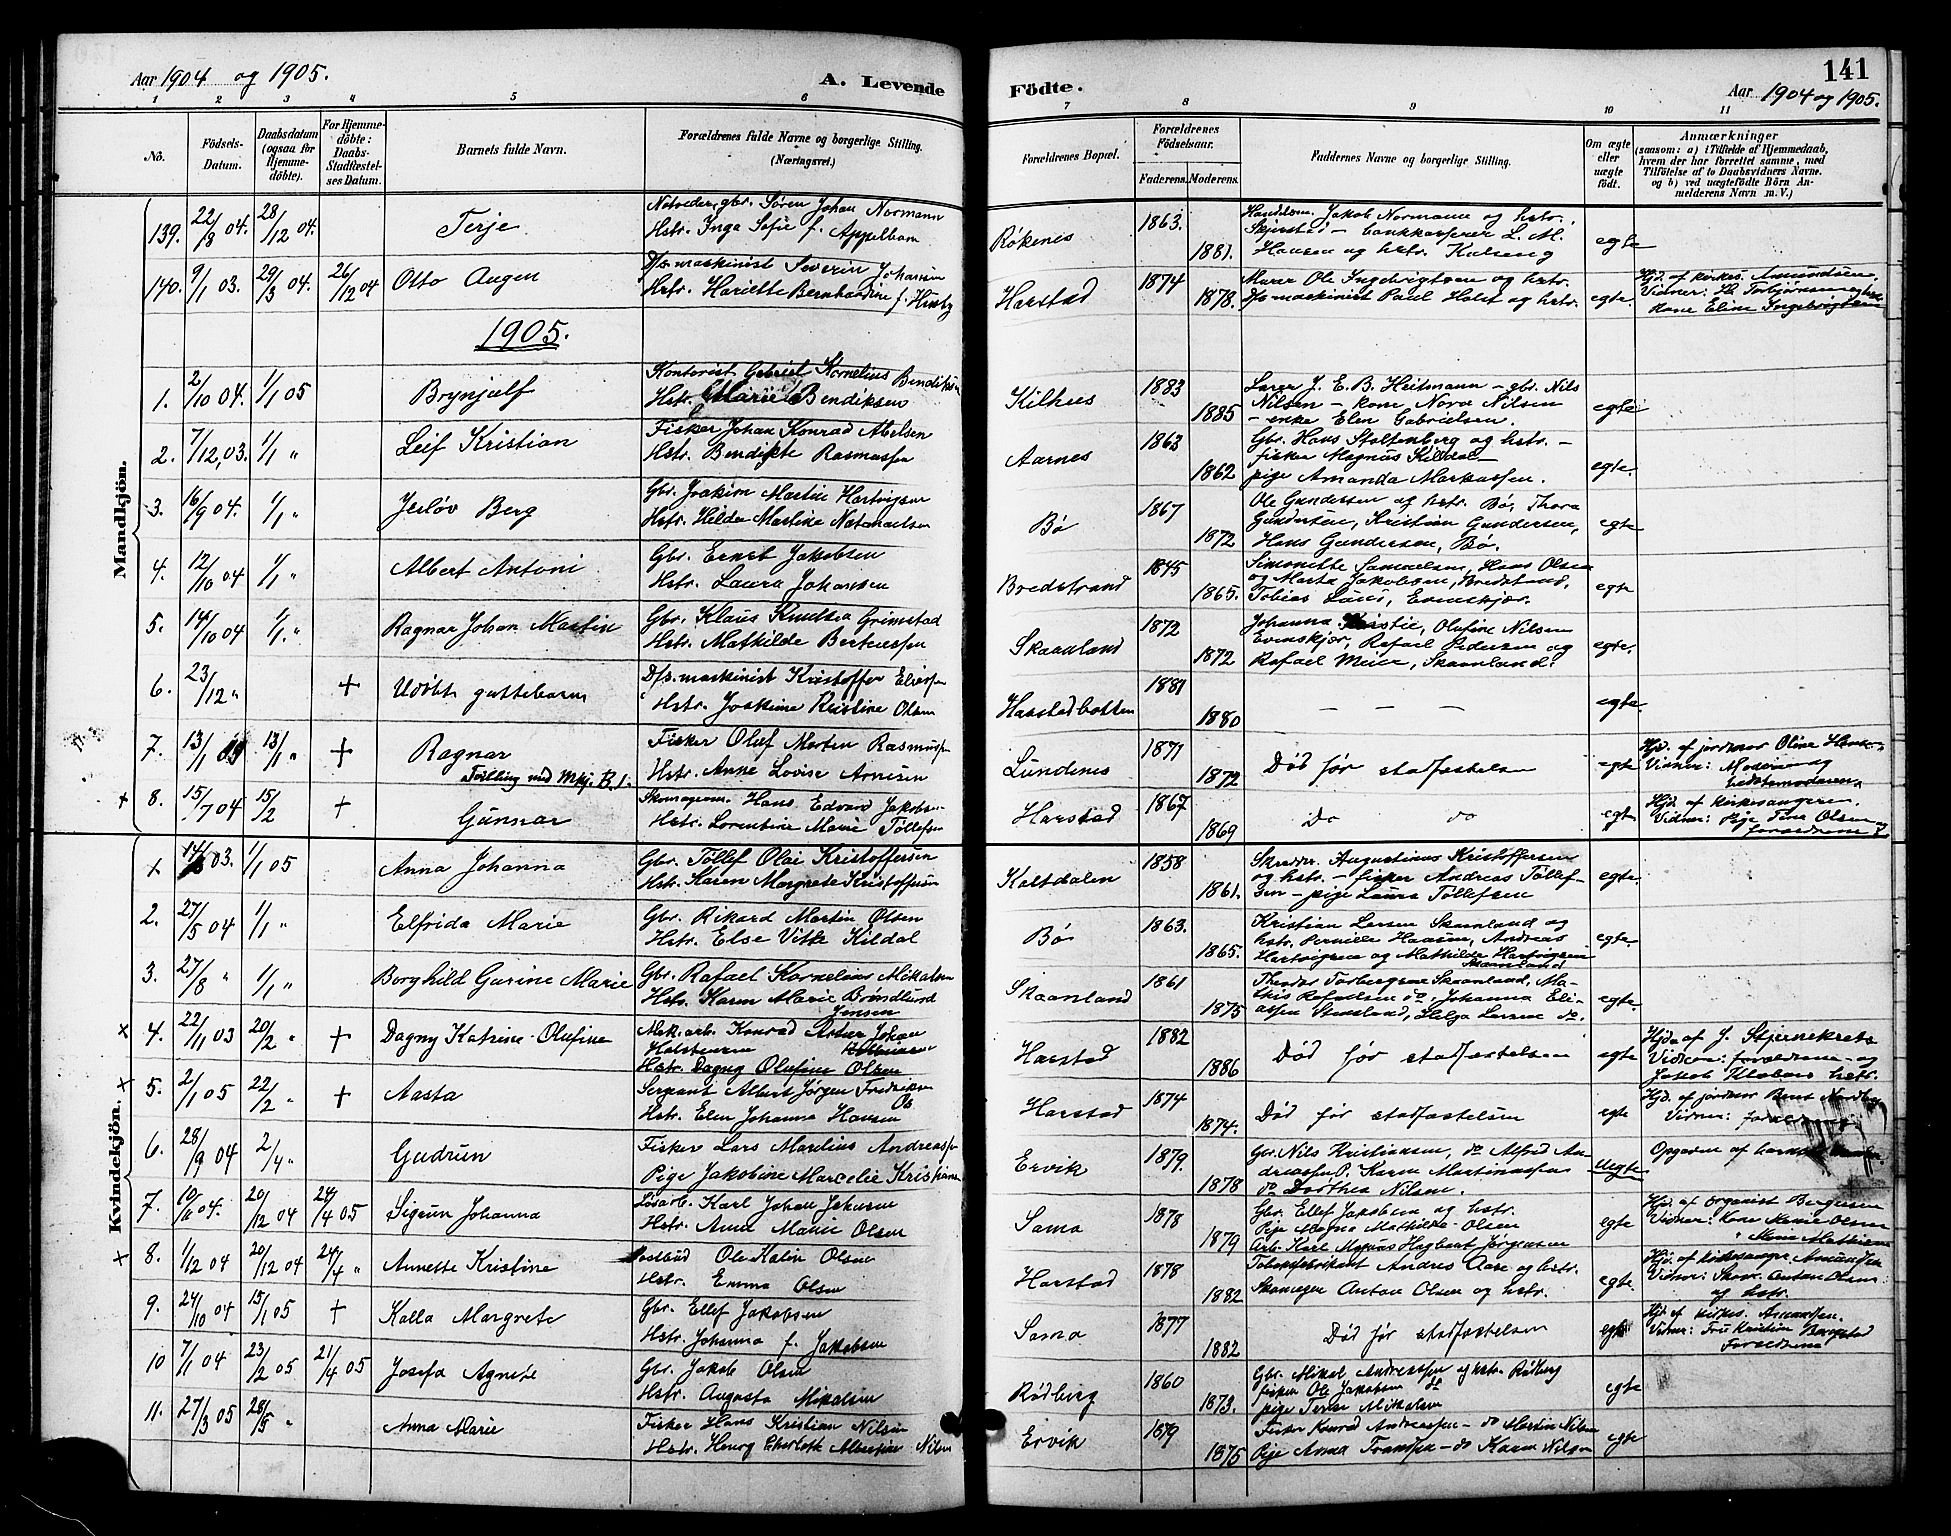 Aar 1904 og 1905.
A. Levende
1 2 3 4 5 6
No.
Födsels-
Datum.
Daabsdatum
(ogsaa for
Hjemme-
döbte).
For Hjemme-
döbte:
Daabs-
Stadfæstel-
ses Datum.
Barnets fulde Navn.
Forældrenes fulde Navne og borgerlige Stilling.
(Næringsvei.)
Mandkjön.
139. 22/8 04. 28/12 04. Terje
Søren Johan Normann
Hstr. Inga Sofie f. Appelbom
140. 9/1 03. 29/3 04. 26/12 04 Otto Augen
D/s. maskinist Severin Johansen
Hstr. Hariette Bernhardine f.
1905.
1. 2/10 04. 1/1 05 Brynjulf
Kontorist Gabriel Kornelius Bendiksen
Hstr. Marie Bendiksen
2. 7/12 03. 1/1 " Leif Kristian
Fisker Johan Konrad Abelsen
Hstr. Bendikte Rasmussen
3. 16/9 04. 1/1 " Jerløv Berg
Gbr. Joakim Martin Hartvigsen
Hstr. Hilda Martine Natanaelsen
4. 12/10 04 1/1 " Albert Antoni
Gbr. Ernst Jakobsen
Hstr. Laura Johansen
5. 14/10 04 1/1. " Ragnar Johan Martin
Gbr. Klaus Knutsen Grimstad
Hstr. Mathilde Berteussen
6. 23/12 " + Udøbt guttebarn
D/s. maskinist Kristoffer Eliassen
Hstr. Joakime Kristine Olsen
7. 13/1 05 13/1 " + Ragnar
Tvilling med Mkj. B. 1.
Fisker Oluf Morten Rasmussen
Hstr. Anne Lovise Arnesen
+ 8. 15/7 04 15/2 + Gunnar
Skomagerm. Hans Edvard Jakobsen
Hstr. Lorentine Marie Tollefsen
Kvindekjön.
14/ 03. 1/1 05 Anna Johanna
Gbr. Tollef Olai Kristoffersen
Hstr. Karen Margrete Kristoffersen
2. 27/5 04 1/1 " Elfrida Marie
Gbr. Rikard Martin Olsen
Hstr. Else Kildal
3. 27/8 " 1/1 " Borghild Gurine Marie
Gbr. Rafael Kornelius Mikalsen
Hstr. Karen Marie Brøndlund
Jensen
x 4. 22/11 03 20/2 " + Dagny Katrine Olufine
Mek. arb. Konrad Artur Johan
Hstr. Dagny Olufine Olsen
x 5. 2/1 05 22/2 " + Aasta
Sergeant Albert Jørgen Fredriksen
Hstr. Elen Johanna Hansen
6. 28/9 04 2/4 " Gudrun
Fisker Lars Marelius Andreassen
Pige Jakobine Marcelie Kristiansen
7. 10/11 04. 20/12 04 24/4 05 Sigrun Johanna
Løsarb. Karl Johan Jensen
Hstr. Anna Marie Olsen
x 8. 1/12 04 20/12 04 24/4 " Annette Kristine
Postbud Ole Kalin Olsen
Hstr. Emma Olsen
9. 24/10 04 15/1 05 + Kalla Margrete
Gbr. Ellef Jakobsen
Hstr. Johanna f. Jakobsen
10 7/1 04 23/2 05 21/4 05 Josefa Agnete
Gbr. Jakob Olsen
Hstr. Augusta Mikalsen
11. 27/3 05 28/5 " Anna Marie
Fisker Hans Kristian Nilsen
Hstr. Henny Charlotte Nilsen
141
Födte.
Aar 1904 og 1905.
7 8 9 10 11
Forældrenes Bopæl.
Forældrenes
Födselsaar.
Faderens. Moderens.
Faddernes Navne og borgerlige Stilling.
Om ægte
eller
uægte
födt.
Anmærkninger
(saasom: a) i Tilfælde af Hjemmedaab,
hvem der har forrettet samme, med
Tilföielse af to Daabsvidners Navne.
og b) ved uægtefödte Börn An-
melderens Navn m. V.)
Røkenes 1863. 1881.
Handelsm. Jakob Normann og hstr.
Skjerstad - bankkasserer L. M.
Hansen og hstr. Kalseng
egte
Harstad 1874 1878.
Murer Ole Ingebrigtsen og hstr.
D/s maskinist Paul Holst og hstr.
egte.
Hjd. af kirkes. Amundsen.
Kone Eline Ingebrigtsen
Kilhus 1883 1885
Lærer J. E. B. Heitmann - gbr. Nils
Nilsen - kone Nora Nilsen
- enke Elen Gabrielsen.
egte
Aarnes 1863 1862
Gbr. Hans Stoltenberg og hstr. -
fisker Magnus Kildal -
pige Amanda Markussen.
egte.
Bø 1867 1872
Ole Gundersen og hstr. Bø, Thora
Gundersen, Kristian Gundersen,
Hans Gundersen, Bø.
egte
Bredstrand 1845 1865.
Simonette Samuelsen, Hans Olsen
og Marta Jakobsen, Bredstrand,
Tobias Lund, Evenskjær.
egte
Skaanland 1872 1872
Johanna Olufine Nilsen
Evenskjær, Rafael Pedersen og
Rafael Meier, Skaanland.
egte.
Harstadbotten 1881 1880
- - -
egte.
Lundenes 1871 1872
Død før stadfæstelsen
egte
Hjd. af jordmor Oline
Vidner: Moderen og
Harstad 1867 1869
Do do
egte
Hjd. af kirkesangeren.
Vidner: Pige Tina Olsen og
forældrene
Kaltdalen 1858 1861.
Skrædder Augustinus Kristoffersen
og hstr. - fisker Andreas Tollef-
sen - pige Laura Tollefsen
egte.
Bø 1863. 1865.
Kristian Larsen Skaanland og
hstr. Pernille Hansen, Andreas
Hartvigsen og Mathilde Hartvigsen
Skaanland
egte
Skaanland 1861 1875
Theodor Torbergsen Skaanland, Ma-
this Rafaelsen do, Johanna Eli-
assen Skaanland, Helga Larsen do.
egte
Harstad 1882 1886
Død før stadfæstelsen
egte
Hjd. af J. Stjernekrets
Vidner: forældrene og
Jakob hstr.
Harstad 1874 1874.
Død før stadfæstelsen
egte
Hjd. af jordmor Beret
Vidner:
Ervik 1879. 1878
Gbr. Nils Kristiansen, do Alfred An-
dreassen P. Karen Martinussen
do Dorthea Nilsen.
Uegte
Opgaven af
Sama 1878 1879
Gbr. Ellef Jakobsen og hstr.
Pige Magna Mathilde Olsen
Arb. Karl Magnus Hagbart Jørgensen
egte
Hjd. af organist Bergesen
Vidner: Kone Marie Olsen
Harstad 1878 1882
Tobaksfabrikant Andres Aase og hstr.
Skomager Anton Olsen og hstr.
egte.
Hjd. af kirkesanger Amundsen
Vidner: Skom. Anton Olsen
og hstr.
Sama 1877 1882
Død før stadfæstelsen
egte
Hjd. af kirkes. Amundsen.
Vidner: Fru Kristine
Forældrene
Rødberg 1860 1873.
Gbr. Mikal Andreassen og hstr. Rødberg
fisker Ole Jakobsen do
pige Mikalsen
egte
Ervik 1879 1875
Fisker Konrad Andreassen - do Martin Nilsen
Pige Anna Frantsen - do Karen Nilsen
egte